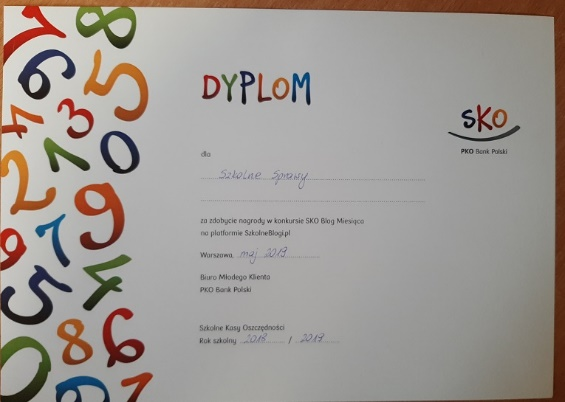 DYPLOM
SKO
PKO Bank Polski
dla
Szkolne Sprawy
za zdobycie nagrody w konkursie SKO Blog Miesiąca
na platformie SzkolneBlogi.pl
Warszawa, maj 2019
Biuro Młodego Klienta
PKO Bank Polski
Szkolne Kasy Oszczędności
Rok szkolny 2018 / 2019